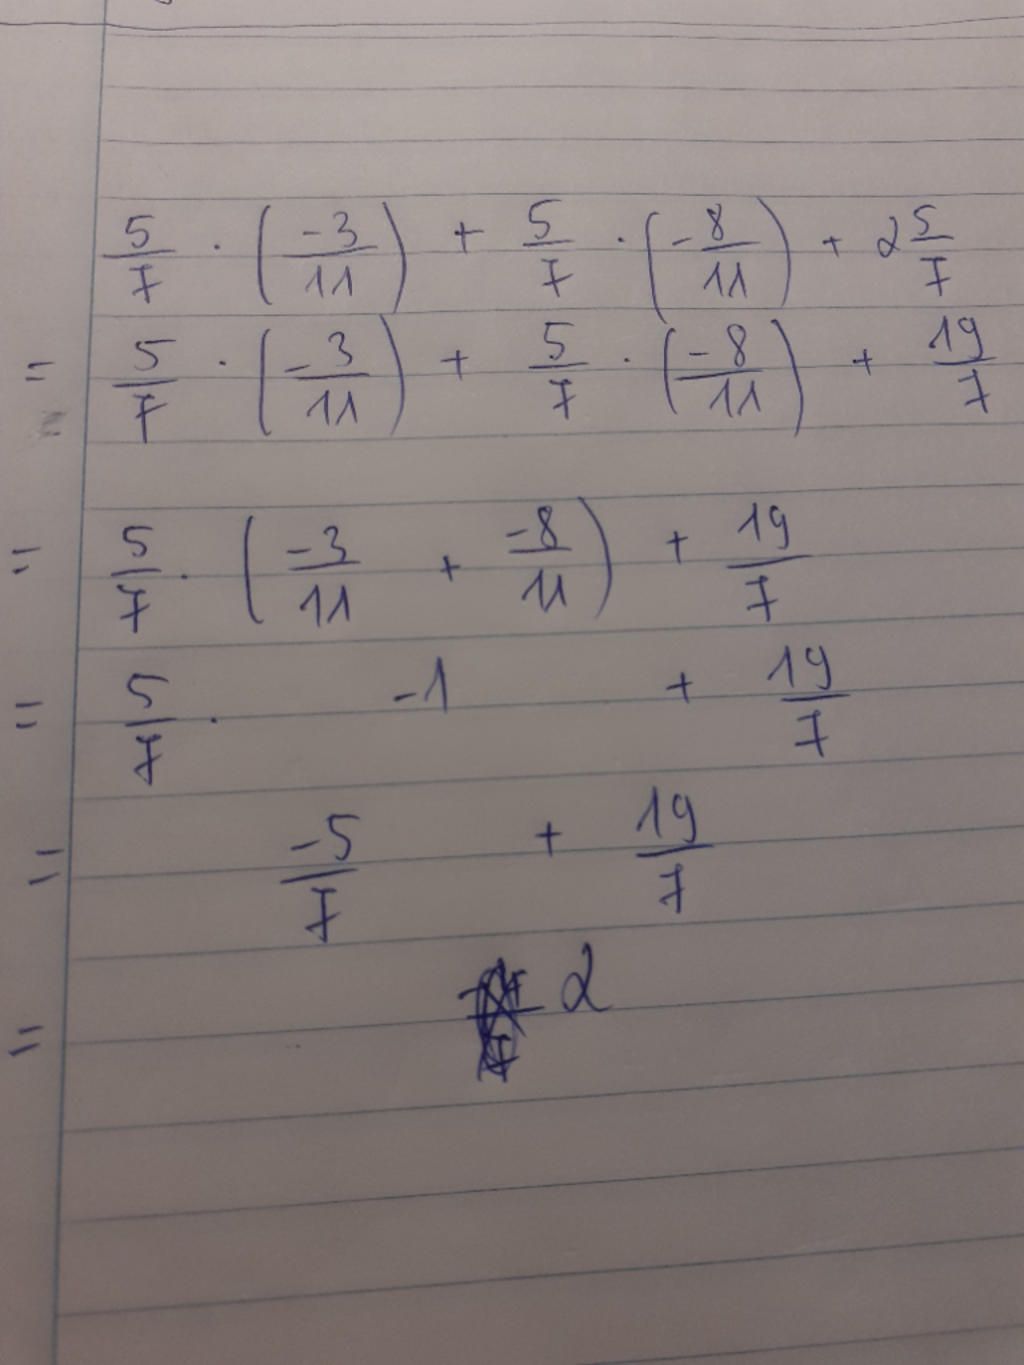 5/7 · (-3/11) + 5/7 · (-8/11) + 2 5/7
= 5/7 · (-3/11) + 5/7 · (-8/11) + 19/7
= 5/7 · (-3/11 + -8/11) + 19/7
= 5/7 · -1 + 19/7
= -5/7 + 19/7
= 2